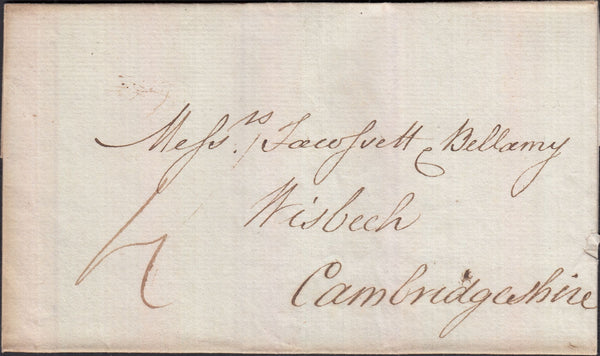 Messrs. Fawssett & Bellamy
Wisbech
4
Cambridgeshire